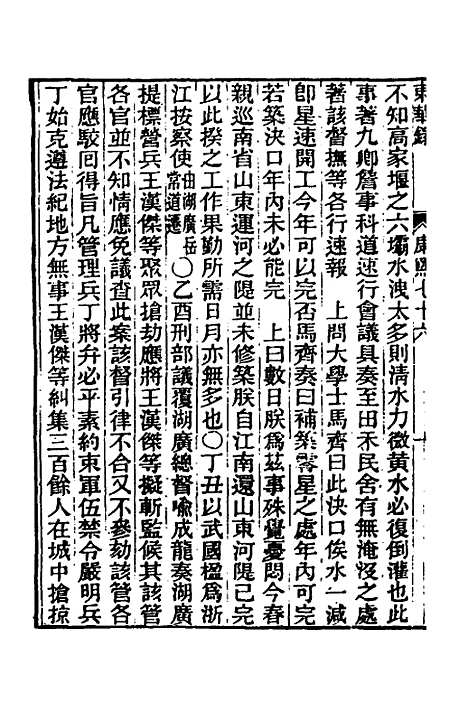 東華錄 康熙七十六
不知高家堰之六壩水洩太多則清水力微黃水必復倒灌也此
事著九卿詹事科道速行會議具奏至田禾民舍有無淹沒之處
著該督撫等各行速報　上問大學士馬齊曰此決口俟水一減
卽星速開工今年可以完否馬齊奏曰補築零星之處年內可完
若築決口年內未必能完　上曰數日朕爲茲事殊覺憂悶今春
親巡南省山東運河之隄並未修築朕自江南還山東河隄已完
以此揆之工作果勤所需日月亦無多也〇丁丑以武國楹爲浙
江按察使由湖廣岳常道遷〇乙酉刑部議覆湖廣總督喻成龍奏湖廣
提標營兵王漢傑等聚眾搶劫應將王漢傑等擬斬監候其該管
各官並不知情應免議查此案該督引律不合又不參劾該管各
官應駁囘得旨凡管理兵丁將弁必平素約束軍伍禁令嚴明兵
丁始克遵法紀地方無事王漢傑等糾集三百餘人在城中搶掠